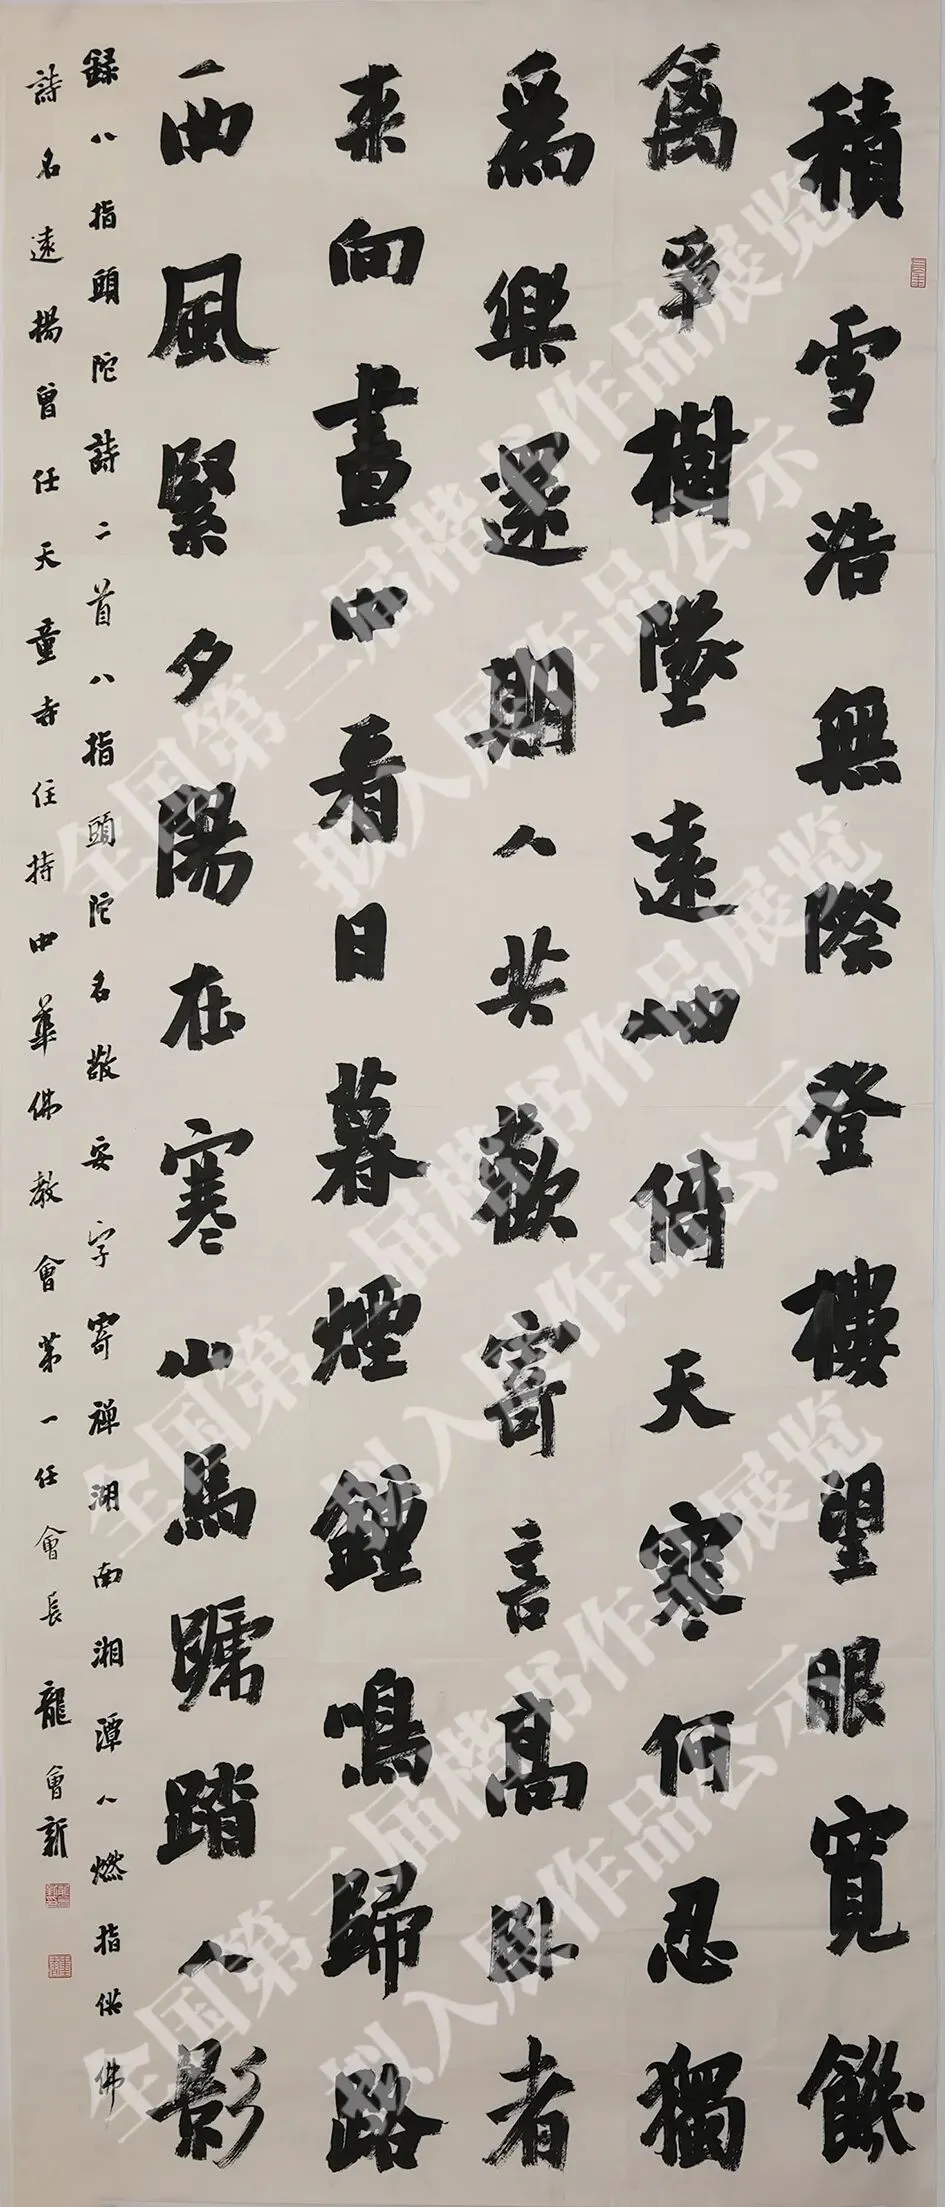 積雪浩無際登樓望眼寬饑
禽爭樹墜遠山倚天寒何忍獨
為樂還期人共歡寄言高臥者
來向畫中看日暮煙鐘鳴歸路
西風緊夕陽在寒山馬蹄踏人影
錄八指頭陀詩二首八指頭陀名敬安字寄禪湖南湘潭人燃指供佛
詩名遠揚曾任天童寺住持中華佛教會第一任會長龍會新
全国第三届楷书作品展览
拟入展作品公示
全国第三届楷书作品展览
拟入展作品公示
全国第三届楷书作品展览
拟入展作品公示